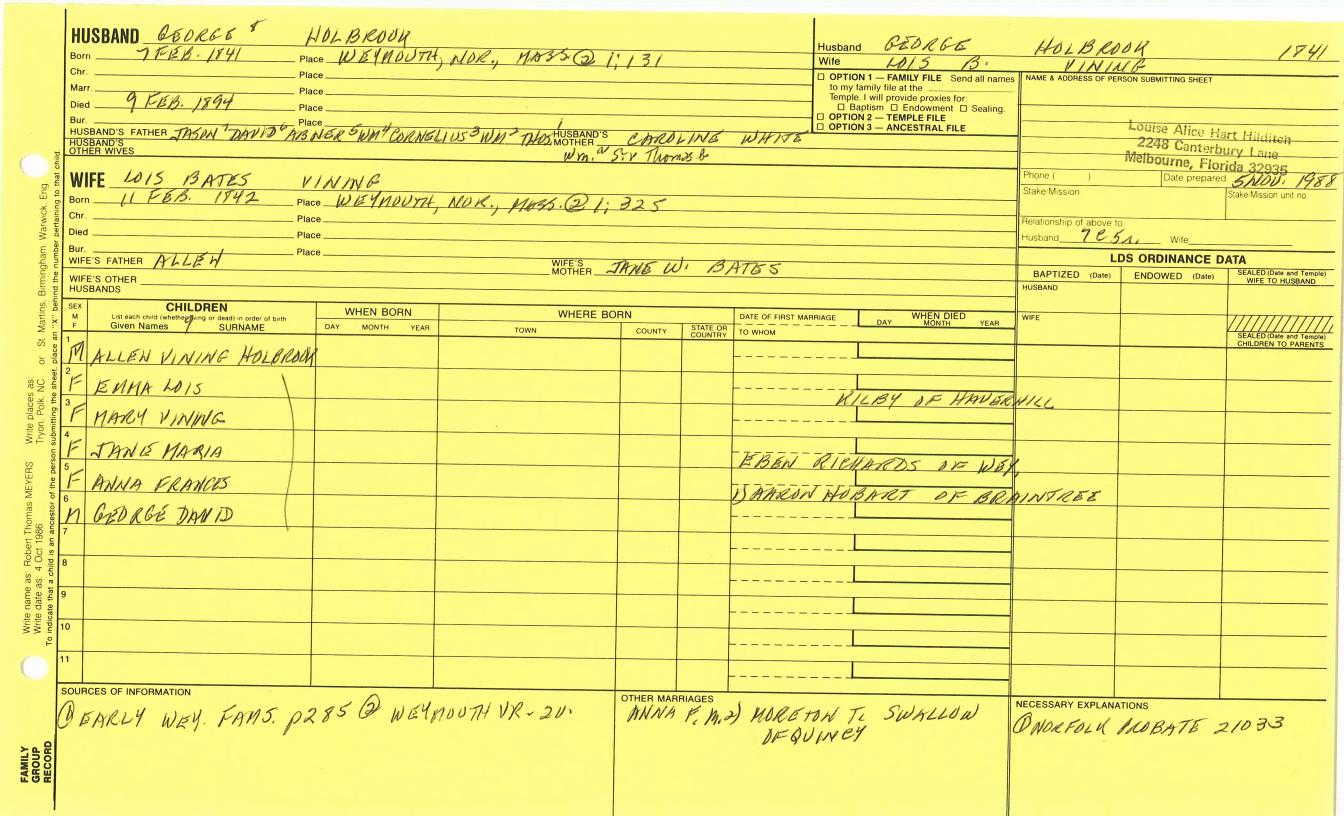 HUSBAND GEORGE 8 HOLBROOK
Born 7 FEB. 1841 Place WEYMOUTH, NOR., MASS ② 1; 131
Chr. Place
Marr. Place
Died 9 FEB. 1894 Place
Bur. Place
HUSBAND'S FATHER JASON 7 DAVID 6 ABNER 5 WM 4 CORNELIUS 3 WM 2 THOS 1 HUSBAND'S MOTHER CAROLINE WHITE
HUSBAND'S OTHER WIVES
Wm. Thomas
WIFE LOIS BATES VINING
Born 11 FEB. 1842 Place WEYMOUTH, NOR., MASS. ② 1; 325
Chr. Place
Died Place
Bur. Place
WIFE'S FATHER ALLEN WIFE'S MOTHER JANE W. BATES
WIFE'S OTHER HUSBANDS
Husband GEORGE HOLBROOK 1841
Wife LOIS B. VINING
☐ OPTION 1 — FAMILY FILE Send all names
to my family file at the
Temple. I will provide proxies for
☐ Baptism ☐ Endowment ☐ Sealing.
☐ OPTION 2 — TEMPLE FILE
☐ OPTION 3 — ANCESTRAL FILE
NAME & ADDRESS OF PERSON SUBMITTING SHEET
Louise Alice Hart Hilditch
2248 Canterbury Lane
Melbourne, Florida 32935
Phone ( ) Date prepared 5 NOV. 1988
Stake Mission Stake Mission unit no.
Relationship of above to
Husband 7C5R. Wife
LDS ORDINANCE DATA
BAPTIZED (Date) ENDOWED (Date) SEALED (Date and Temple) WIFE TO HUSBAND
HUSBAND
WIFE
SEALED (Date and Temple) CHILDREN TO PARENTS
SEX M F
CHILDREN
List each child (whether living or dead) in order of birth
Given Names 9 SURNAME
WHEN BORN
DAY MONTH YEAR
WHERE BORN
TOWN COUNTY STATE OR COUNTRY
DATE OF FIRST MARRIAGE
TO WHOM
WHEN DIED
DAY MONTH YEAR
1 M ALLEN VINING HOLBROOK
2 F EMMA LOIS
KILBY OF HAVERHILL
3 F MARY VINING
4 F JANE MARIA
EBEN RICHARDS OF WEY.
5 F ANNA FRANCES
1) AARON HOBART OF BRAINTREE
6 M GEORGE DAVID
7
8
9
10
11
SOURCES OF INFORMATION
① EARLY WEY. FAMS. p285 ② WEYMOUTH VR - 2v.
OTHER MARRIAGES
ANNA F. m. 2) MORETON T. SWALLOW
OF QUINCY
NECESSARY EXPLANATIONS
① NORFOLK PROBATE 21033
Write name as: Robert Thomas MEYERS Write places as: Tryon, Polk, NC or St. Martins, Birmingham, Warwick, Eng.
Write date as: 4 Oct 1986
To indicate that a child is an ancestor of the person submitting the sheet, place an "X" behind the number pertaining to that child.
FAMILY
GROUP
RECORD